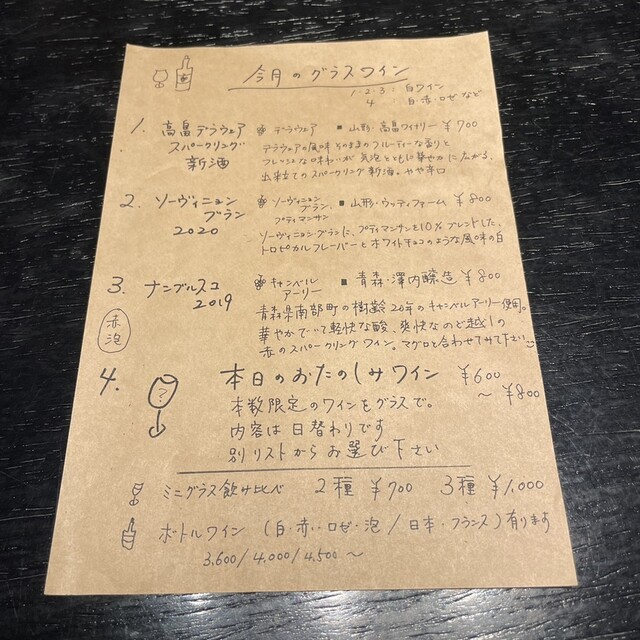 今月のグラスワイン
1・2・3：白ワイン
4：白・赤・ロゼなど
1. 高畠デラウェア デラウェア ■山形・高畠ワイナリー ¥700
スパークリング デラウェアの風味そのままのフルーティーな香りと
新酒 フレッシュな味わいが気泡とともに華やかに広がる、
出来立てのスパークリング新酒。やや辛口
2. ソーヴィニョン ソーヴィニョン ■山形・ウッディファーム ¥800
ブラン ブラン、
2020 プティマンサン
ソーヴィニョンブランに、プティマンサンを10%ブレンドした、
トロピカルフレーバーとホワイトチョコのような風味の白
3. ナンブルスコ キャンベル ■青森・澤内醸造 ¥800
2019 アーリー
赤 青森県南部町の樹齢20年のキャンベルアーリー使用。
泡 華やかでいて軽快な酸、爽快なのど越しの
赤のスパークリングワイン。マグロと合わせてみて下さい
4. ? 本日のおたのしみワイン ¥600
〜¥800
本数限定のワインをグラスで。
内容は日替わりです
別リストからお選び下さい
ミニグラス飲み比べ 2種 ¥700 3種 ¥1,000
ボトルワイン (白・赤・ロゼ・泡/日本・フランス)有ります
3,600/4,000/4,500〜